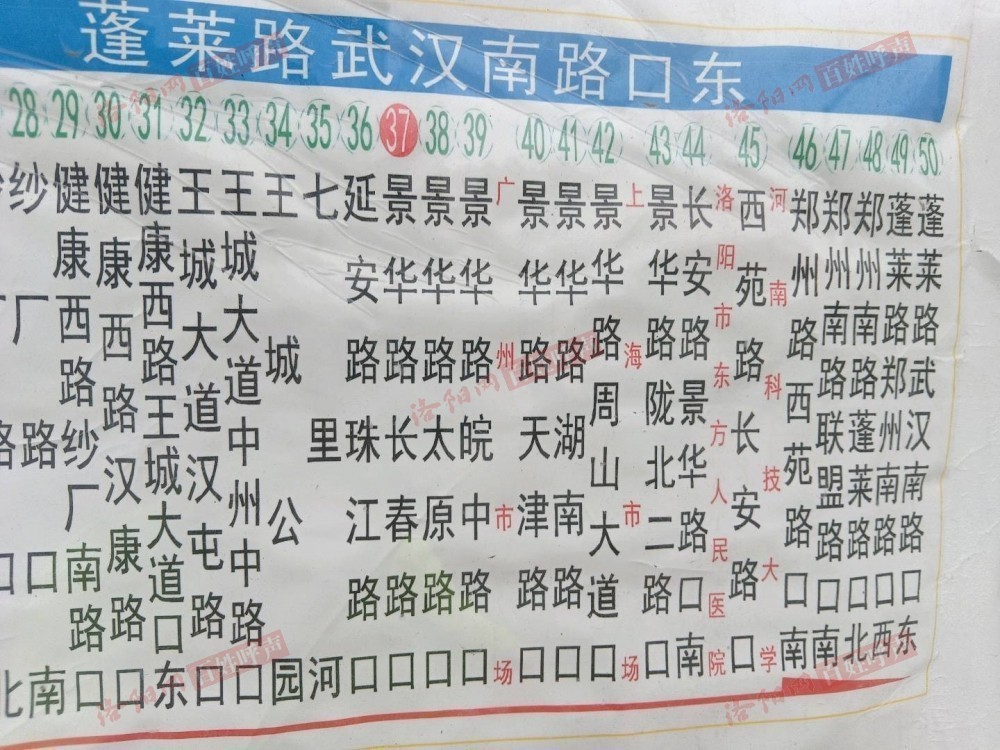 蓬莱路武汉南路口东
28 29 30 31 32 33 34 35 36 37 38 39 40 41 42 43 44 45 46 47 48 49 50
纱厂路口南
健康西路纱厂南路口
健康西路汉康路口
健康西路王城大道口东
王城大道汉屯路口
王城大道中州中路口
王城公园
七里河
延安路珠江路口
景华路长春路口
景华路太原路口
景华路皖中路口
广州市场
景华路天津路口
景华路湖南路口
景华路周山大道口
上海市场
景华路陇北二路口
长安路景华路口南
洛阳市东方人民医院
西苑路长安路口
河南科技大学
郑州路西苑路口南
郑州南路联盟路口南
郑州南路蓬莱路口北
蓬莱路郑州南路口西
蓬莱路武汉南路口东
洛阳网 百姓呼声